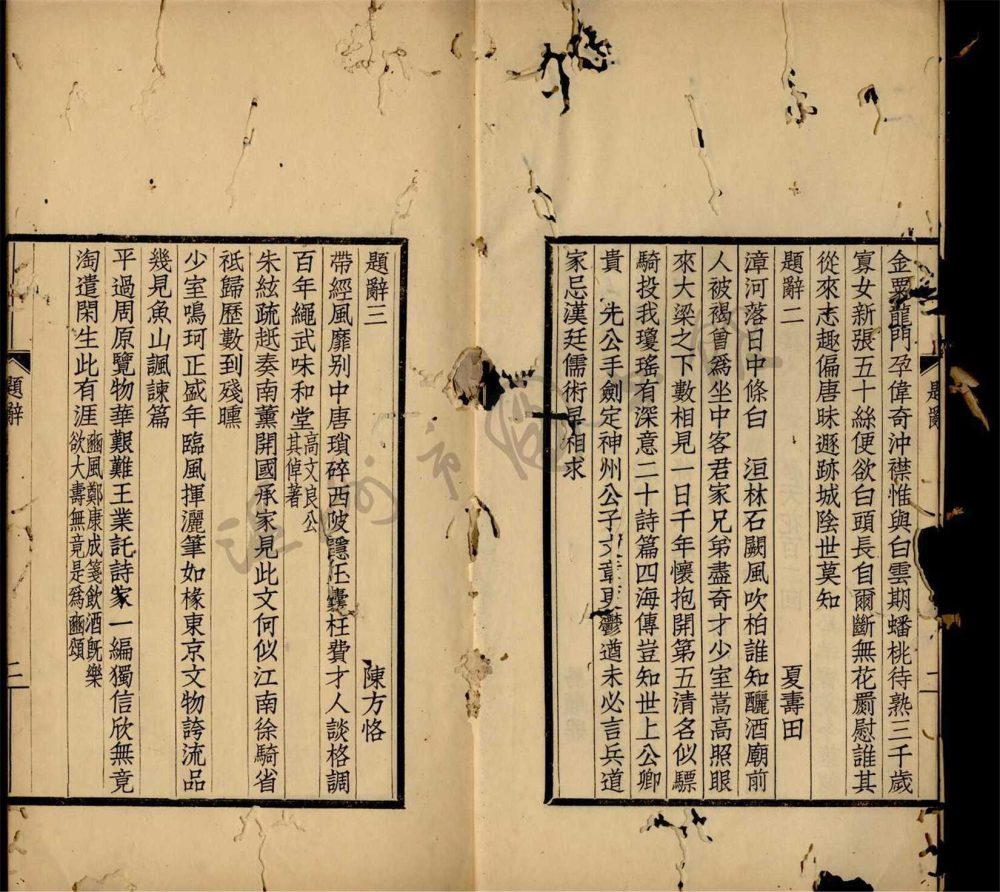 金粟龍門孕偉奇沖襟惟與白雲期蟠桃待熟三千歲
寡女新張五十絲便欲白頭長自爾斷無花屬慰誰其
從來志趣偏唐昧遯跡城陰世莫知
題辭二
夏壽田
漳河落日中條白 洹林石闕風吹柏誰知釃酒廟前
人被褐曾爲坐中客君家兄弟盡奇才少室嵩高照眼
來大梁之下數相見一日千年懷抱開第五清名似驃
騎投我瓊瑤有深意二十詩篇四海傳豈知世上公卿
貴 先公手劍定神州公子文章更鬱遒未必言兵道
家忌漢廷儒術早相求
題辭
二
題辭三
陳方恪
帶經風靡别中唐瑣碎西陂隱囊枉費才人談格調
百年繩武味和堂高文良公
其倬著
朱絃疏趆奏南薰開國承家見此文何似江南徐騎省
祗歸歷數到殘曛
少室鳴珂正盛年臨風揮灑筆如椽東京文物誇流品
幾見魚山諷諫篇
平過周原覽物華艱難王業託詩家一編獨信欣無竟
淘遣閑生此有涯豳風鄭康成箋飲酒旣樂
欲大壽無竟是爲豳頌
題辭
二